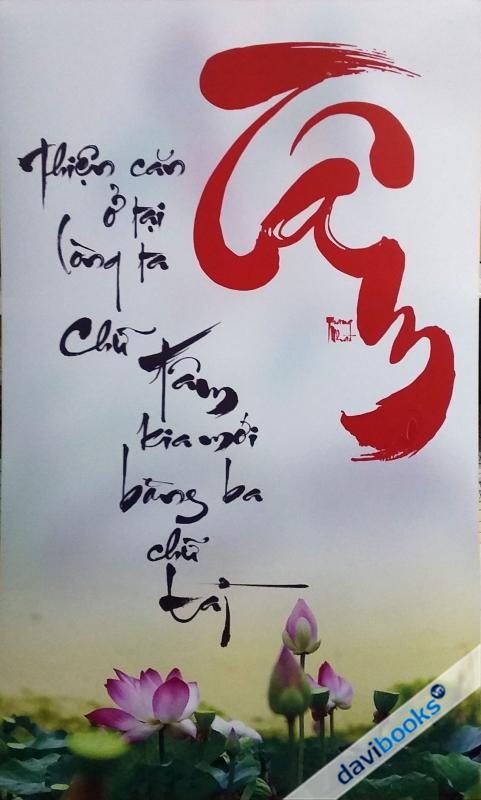 Tâm
Thiện căn
ở tại
lòng ta
Chữ
tâm
kia mới
bằng ba
chữ
tài
davibooks.vn